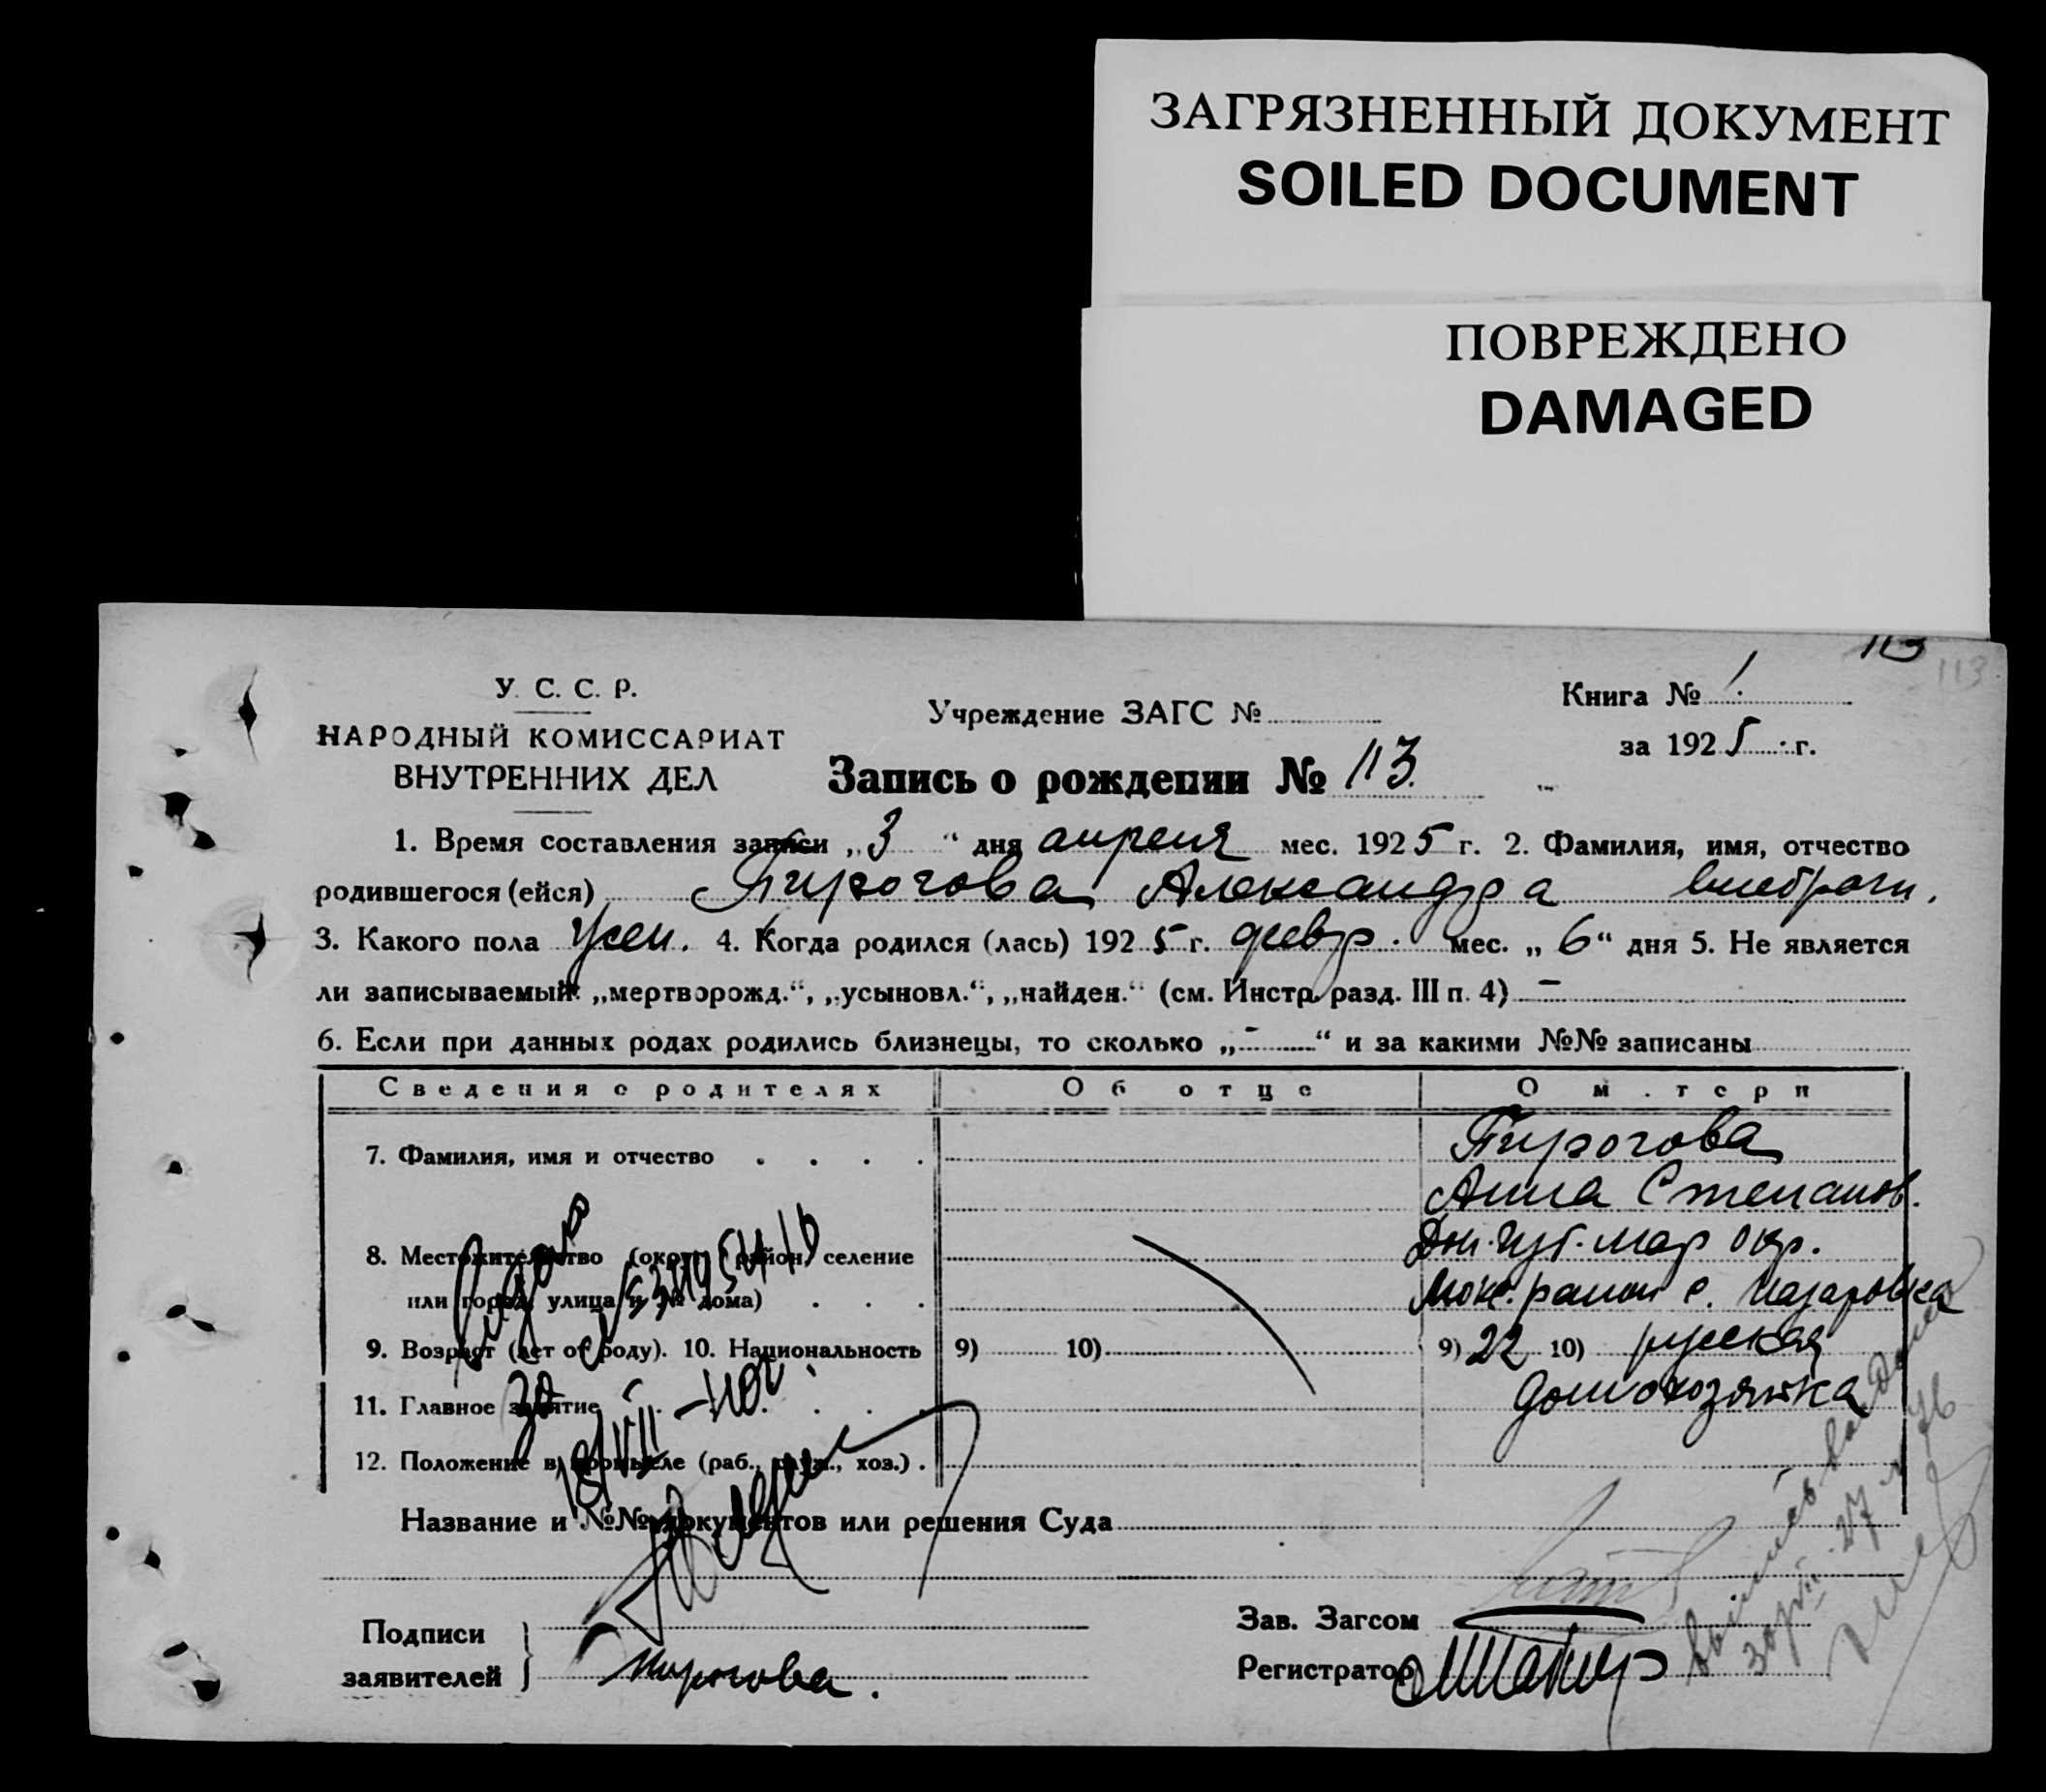 ЗАГРЯЗНЕННЫЙ ДОКУМЕНТ
SOILED DOCUMENT
ПОВРЕЖДЕНО
DAMAGED
113
113
У. С. С. Р.
НАРОДНЫЙ КОМИССАРИАТ
ВНУТРЕННИХ ДЕЛ
Учреждение ЗАГС №
Книга № 1.
за 1925 г.
Запись о рождении № 113.
1. Время составления записи „3“ дня апреля мес. 1925 г. 2. Фамилия, имя, отчество
родившегося (ейся) Пирогова Александра внебрачн.
3. Какого пола жен. 4. Когда родился (лась) 1925 г. февр. мес. „6“ дня 5. Не является
ли записываемый: „мертворожд.“, „усыновл.“, „найден.“ (см. Инстр. разд. III п. 4) –
6. Если при данных родах родились близнецы, то сколько „-“ и за какими №№ записаны
Сведения о родителях Об отце О матери
7. Фамилия, имя и отчество . . . . Пирогова
Анна Степанов.
8. Местожительство (округ, район, селение Дон. губ. Мар окр.
или город, улица и № дома) . . . район с. Назаровка
9. Возраст (лет от роду). 10. Национальность 9) 10) 9) 22 10) русская
11. Главное занятие . . . . . домохозяйка
12. Положение в промысле (раб., служ., хоз.) .
Название и №№ документов или решения Суда
Подписи
заявителей } Пирогова.
Зав. Загсом
Регистратор